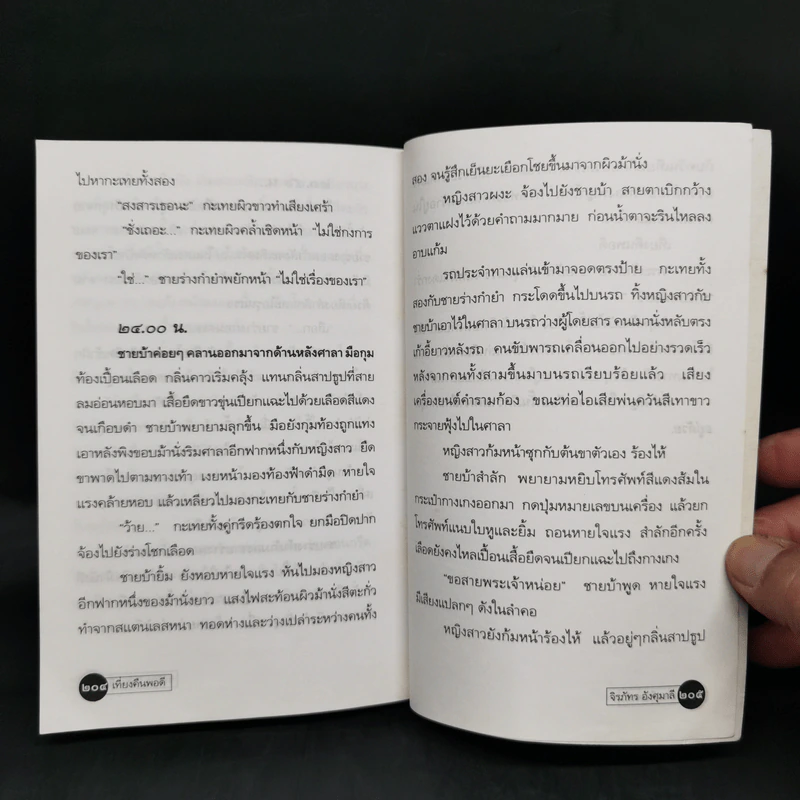 ไปหากะเทยทั้งสอง
“สงสารเธอนะ” กะเทยผิวขาวทำเสียงเศร้า
“ช่างเถอะ...” กะเทยผิวคล้ำเชิดหน้า “ไม่ใช่กงการ
ของเรา”
“ใช่...” ชายร่างกำยำพยักหน้า “ไม่ใช่เรื่องของเรา”
๒๔.๐๐ น.
ชายบ้าค่อยๆ คลานออกมาจากด้านหลังศาลา มือกุม
ท้องเปื้อนเลือด กลิ่นคาวเริ่มคลุ้ง แทนกลิ่นสาปธูปที่สาย
ลมอ่อนหอบมา เสื้อยืดขาวขุ่นเปียกแฉะไปด้วยเลือดสีแดง
จนเกือบดำ ชายบ้าพยายามลุกขึ้น มือยังกุมท้องถูกแทง
เอาหลังพิงขอบม้านั่งริมศาลาอีกฟากหนึ่งกับหญิงสาว ยืด
ขาพาดไปตามทางเท้า เงยหน้ามองท้องฟ้าดำมืด หายใจ
แรงคล้ายหอบ แล้วเหลียวไปมองกะเทยกับชายร่างกำยำ
“ว้าย...” กะเทยทั้งคู่กรีดร้องตกใจ ยกมือปิดปาก
จ้องไปยังร่างโชกเลือด
ชายบ้ายิ้ม ยังหอบหายใจแรง หันไปมองหญิงสาว
อีกฟากหนึ่งของม้านั่งยาว แสงไฟสะท้อนผิวม้านั่งสีตะกั่ว
ทำจากสแตนเลสหนา ทอดห่างและว่างเปล่าระหว่างคนทั้ง
๒๐๔ เที่ยงคืนพอดี
สอง จนรู้สึกเย็นยะเยือกโชยขึ้นมาจากผิวม้านั่ง
หญิงสาวผงะ จ้องไปยังชายบ้า สายตาเบิกกว้าง
แววตาแฝงไว้ด้วยคำถามมากมาย ก่อนน้ำตาจะรินไหลลง
อาบแก้ม
รถประจำทางแล่นเข้ามาจอดตรงป้าย กะเทยทั้ง
สองกับชายร่างกำยำ กระโดดขึ้นไปบนรถ ทิ้งหญิงสาวกับ
ชายบ้าเอาไว้ในศาลา บนรถว่างผู้โดยสาร คนเมานั่งหลับตรง
เก้าอี้ยาวหลังรถ คนขับพารถเคลื่อนออกไปอย่างรวดเร็ว
หลังจากคนทั้งสามขึ้นมาบนรถเรียบร้อยแล้ว เสียง
เครื่องยนต์คำรามก้อง ขณะท่อไอเสียพ่นควันสีเทาขาว
กระจายฟุ้งไปในศาลา
หญิงสาวก้มหน้าซุกกับต้นขาตัวเอง ร้องไห้
ชายบ้าสำลัก พยายามหยิบโทรศัพท์สีแดงส้มใน
กระเป๋ากางเกงออกมา กดปุ่มหมายเลขบนเครื่อง แล้วยก
โทรศัพท์แนบใบหูและยิ้ม ถอนหายใจแรง สำลักอีกครั้ง
เลือดยังคงไหลเปื้อนเสื้อยืดจนเปียกแฉะไปถึงกางเกง
“ขอสายพระเจ้าหน่อย” ชายบ้าพูด หายใจแรง
มีเสียงแปลกๆ ดังในลำคอ
หญิงสาวยังก้มหน้าร้องไห้ แล้วอยู่ๆกลิ่นสาปธูป
จิรภัทร อังศุมาลี ๒๐๕